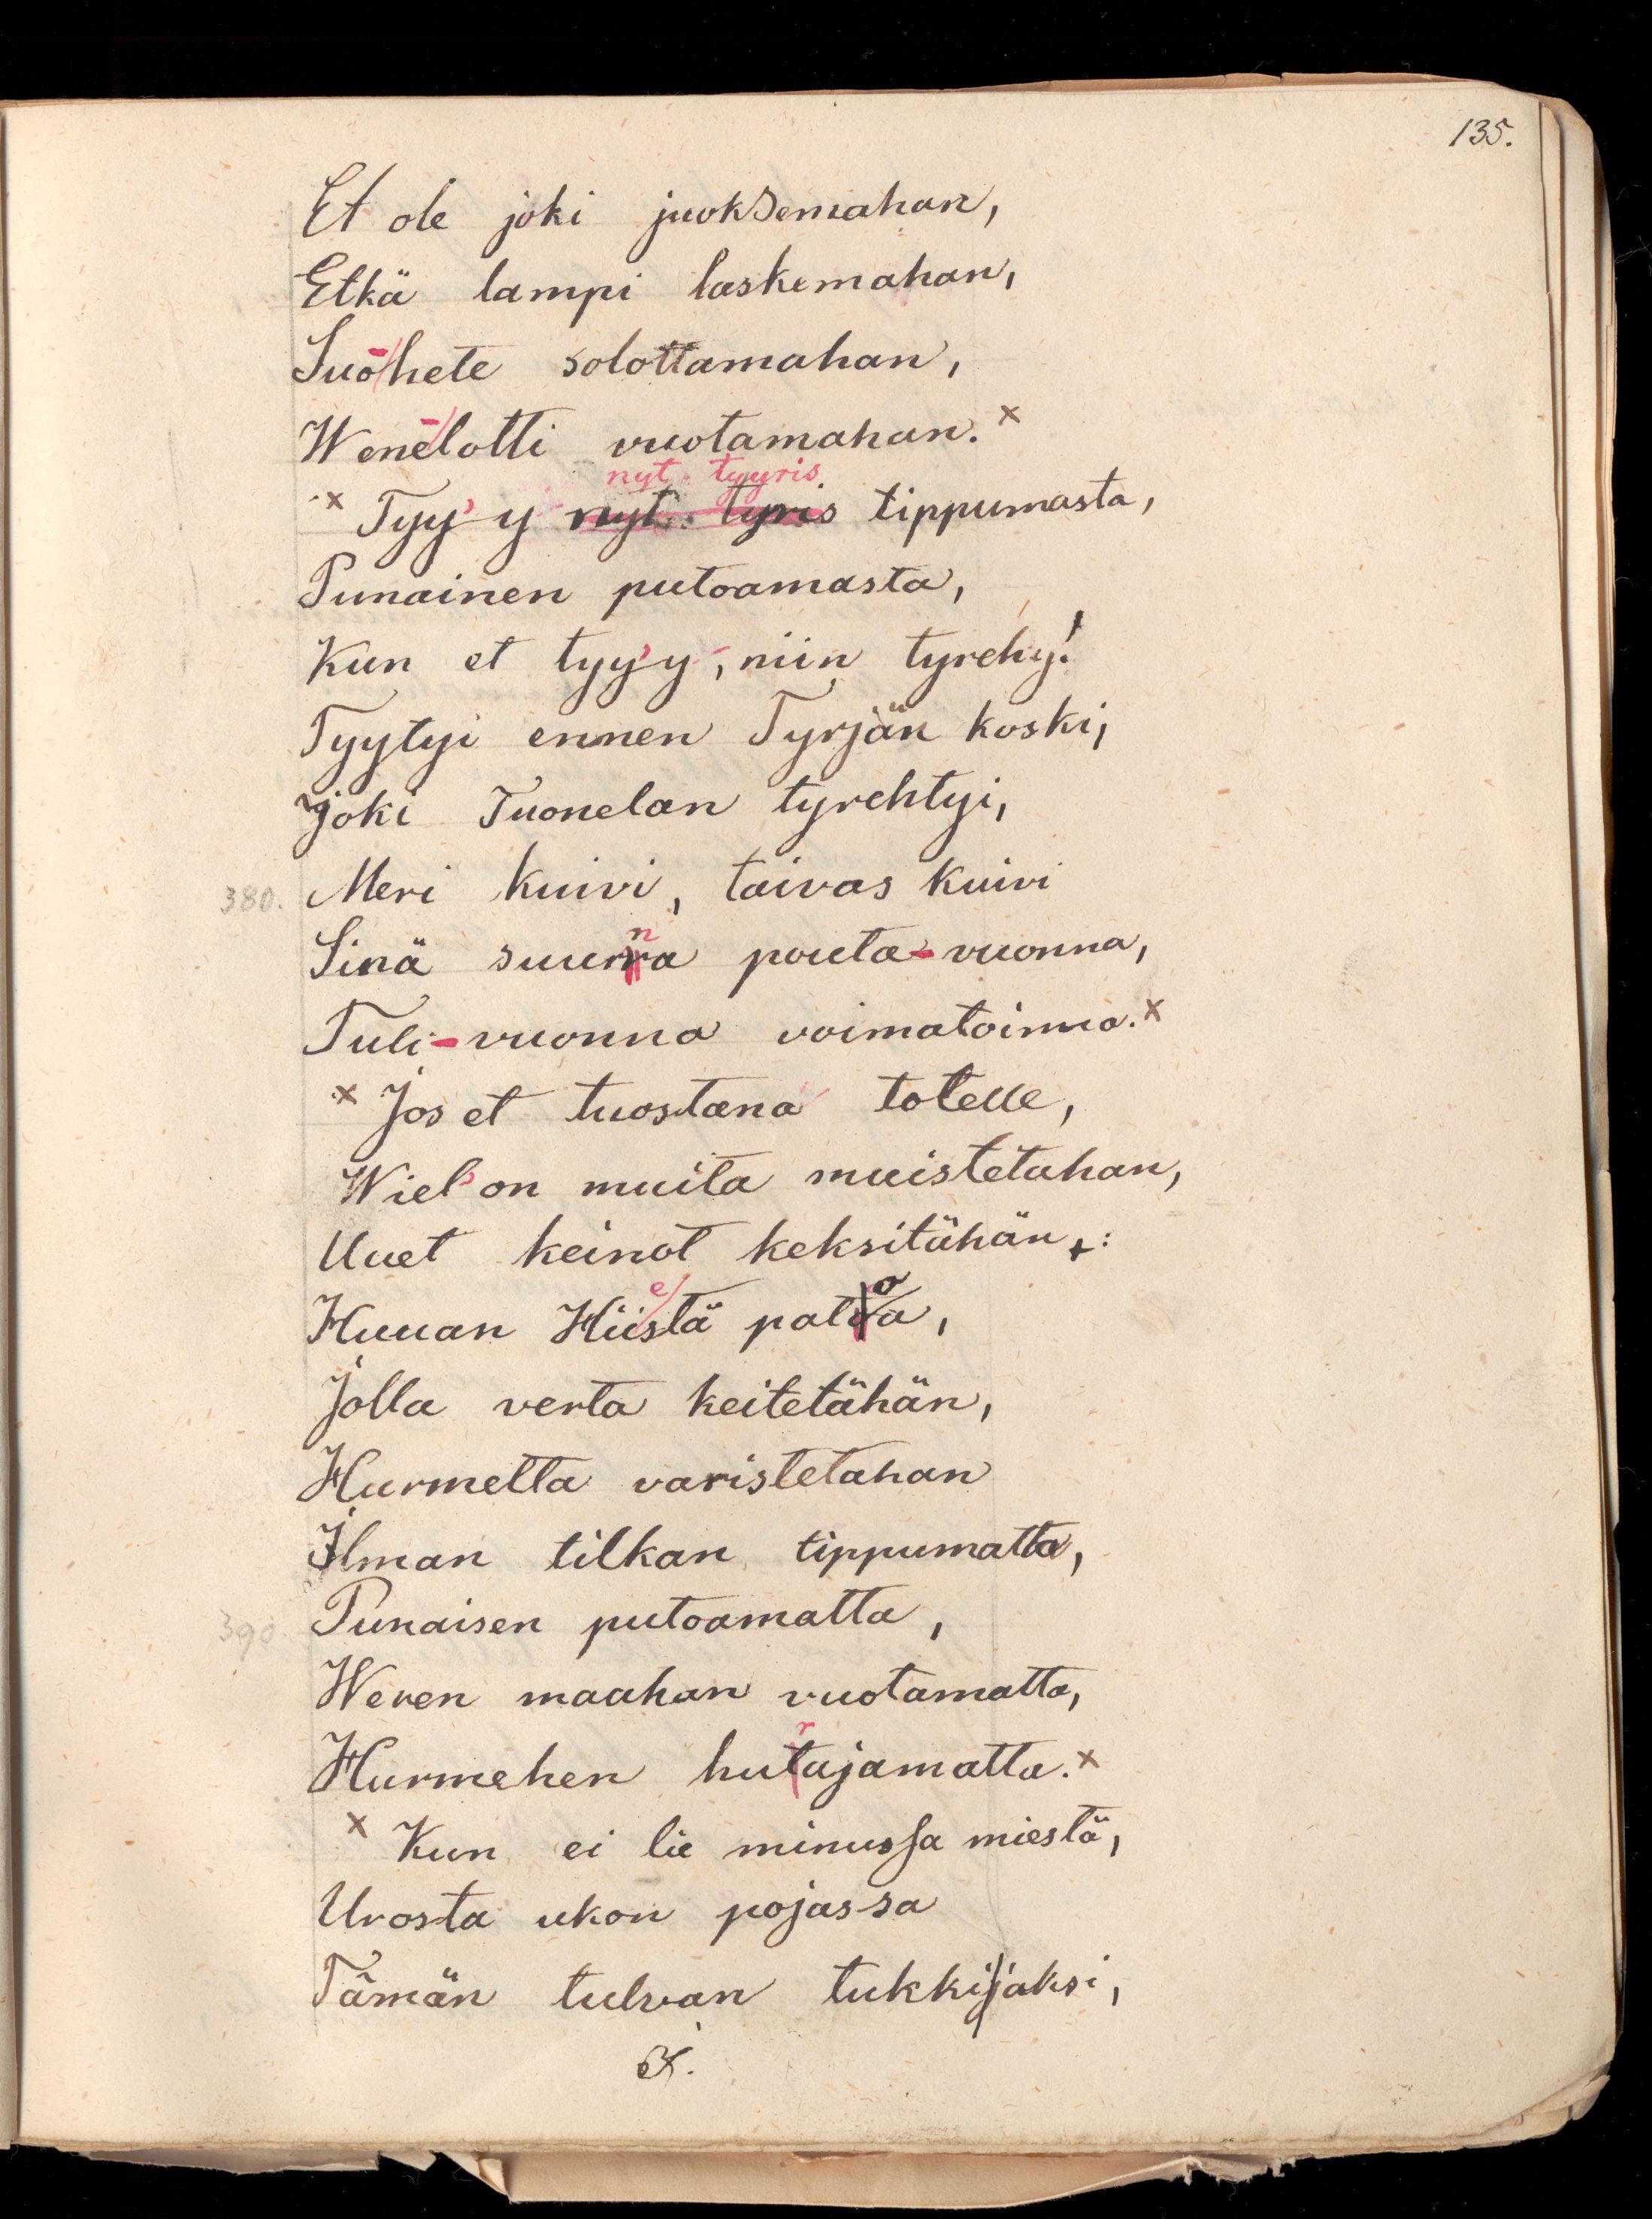 135.
Et ole joki juoksemahan,
Etkä lampi laskemahan,
Suo-hete solottamahan,
Wene-lotti vuotamahan.ˣ
nyt tyyris
ˣ Tyy'y nyt tyris tippumasta,
Punainen putoamasta,
Kun et tyy'y, niin tyrehy!
Tyytyi ennen Tyrjän koski,
Joki Tuonelan tyrehtyi,
380. Meri kuivi, taivas kuivi
n
Sinä suurra pouta-vuonna,
Tuli-vuonna voimatoinna.ˣ
ˣ Jos et tuostana totelle,
Wiel' on muita muistetahan,
Uuet keinot keksitähän:
e o
Huuan Hiistä patoa,
Jolla verta keitetähän,
Hurmetta varistetahan
Ilman tilkan tippumatta,
390. Punaisen putoamatta,
Weren maahan vuotamatta,
r
Hurmehen hutajamatta.ˣ
ˣ Kun ei lie minussa miestä,
Urosta ukon pojassa
Tämän tulvan tukkijaksi,